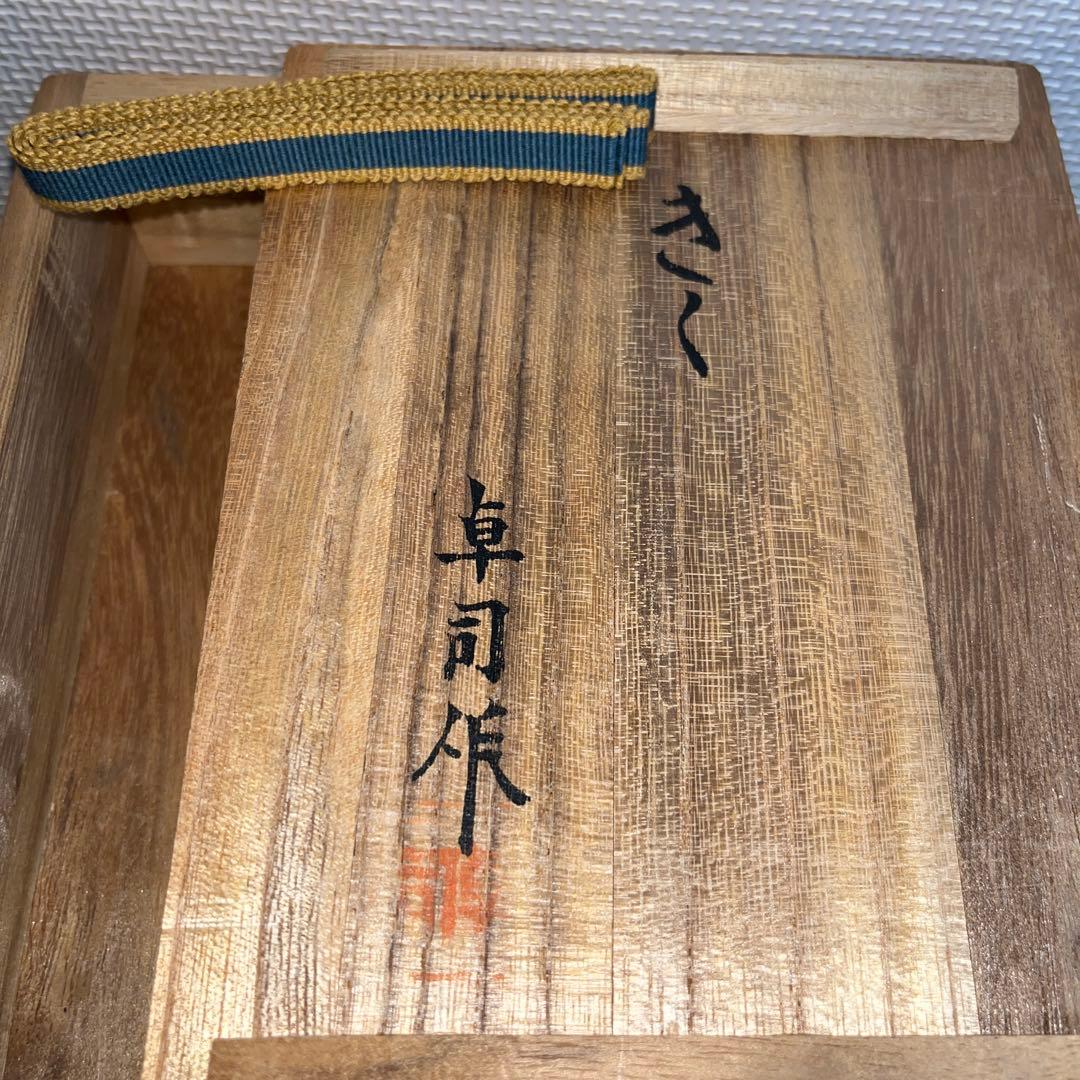 きく
卓司作